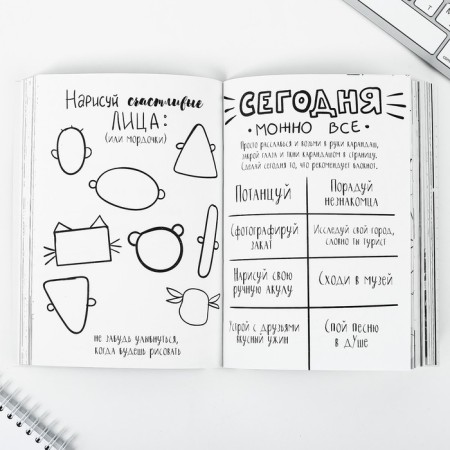 Нарисуй счастливые
лица:
(или мордочки)
не забудь улыбнуться,
когда будешь рисовать
СЕГОДНЯ
МОЖНО ВСЕ
Просто расслабься и возьми в руки карандаш,
закрой глаза и ткни карандашом в страницу.
Сделай сегодня то, что рекомендует блокнот.
Потанцуй
Порадуй
незнакомца
Сфотографируй
закат
Исследуй свой город,
словно ты турист
Нарисуй свою
ручную акулу
Сходи в музей
Устрой с друзьями
вкусный ужин
Спой песню
в душе